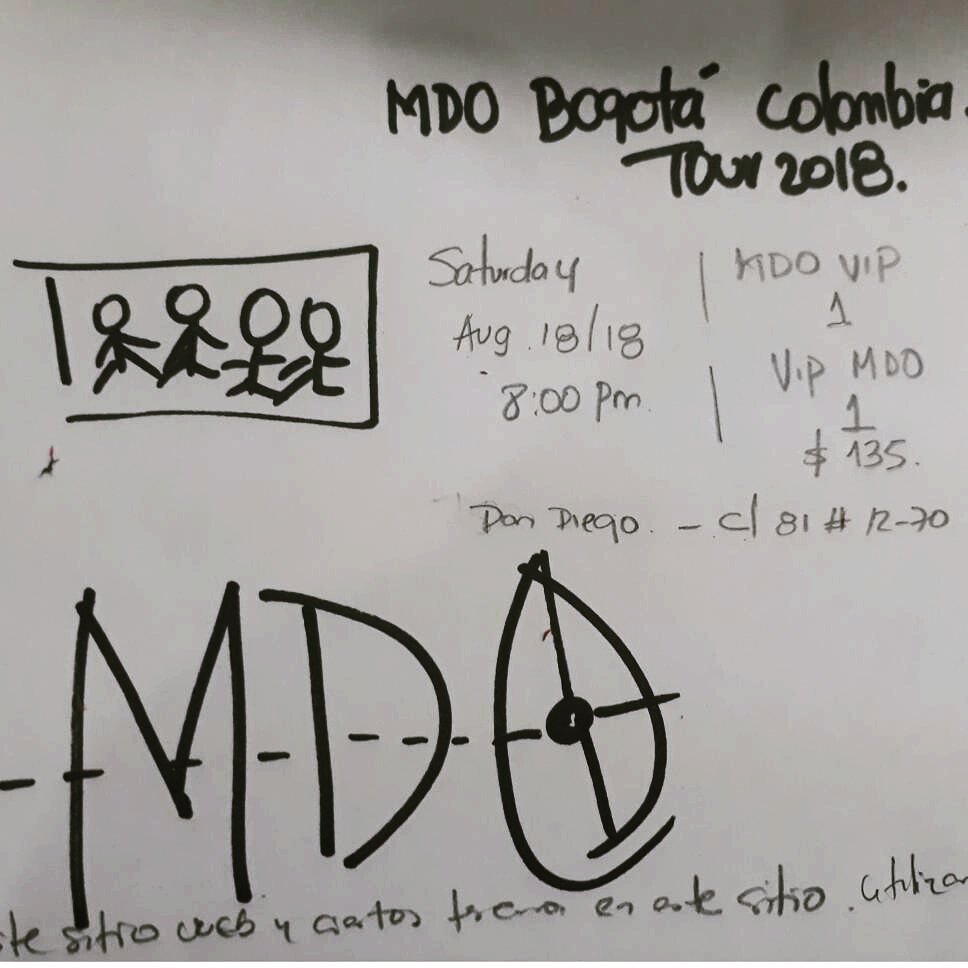 MDO Bogotá Colombia.
Tour 2018.
Saturday
Aug. 18/18
8:00 Pm.
MDO VIP
1
Vip MDO
1
$ 135.
Don Diego. - c/ 81 # 12-70
MDO
ste sitio web y ciertos en este sitio. utilizar